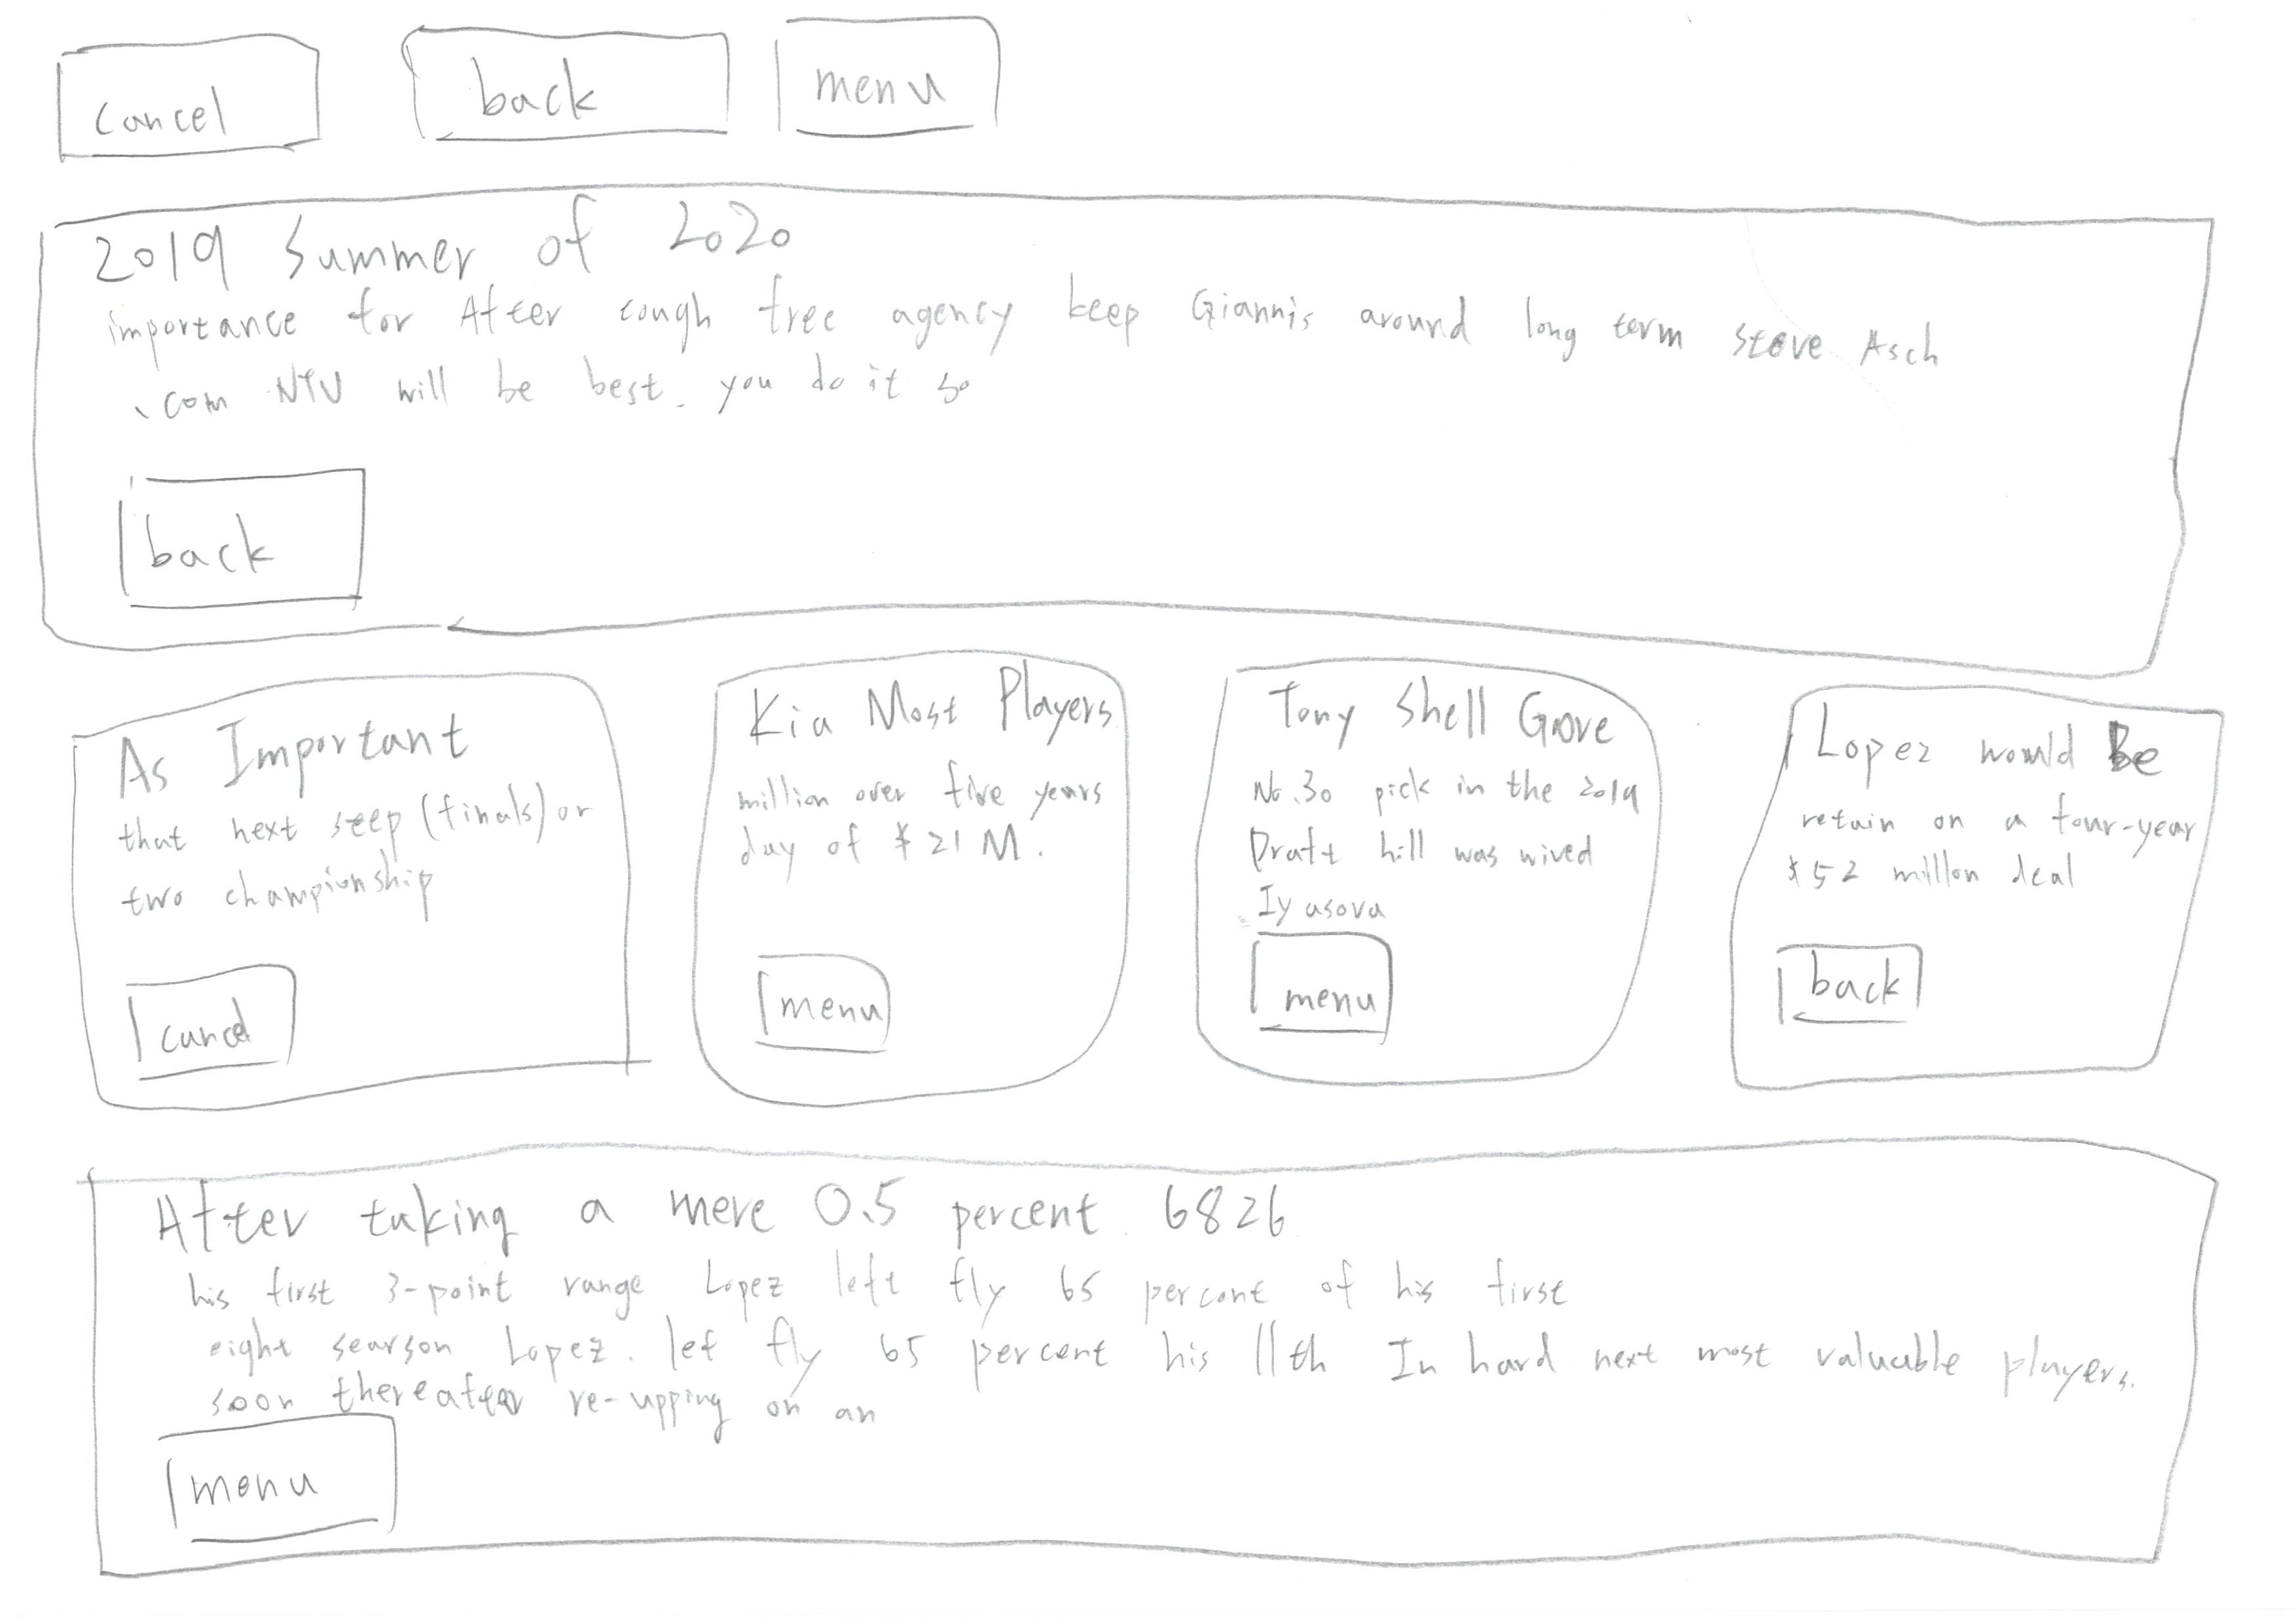 cancel
back
menu
2019 Summer of 2020
importance for After tough free agency keep Giannis around long term Steve Asch
.com NTV will be best. you do it so
back
As Important
that next seep (finals) or
two championship
cancel
Kia Most Players
million over five years
day of $21 M.
menu
Tony Shell Grove
No.30 pick in the 2019
Draft hill was wived
Iyasova
menu
Lopez would Be
retain on a four-year
$52 millon deal
back
After taking a mere 0.5 percent 6826
his first 3-point range Lopez left fly 65 percent of his first
eight searson Lopez. let fly 65 percent his 11th In hard next most valuable players.
soon thereafter re-upping on an
menu